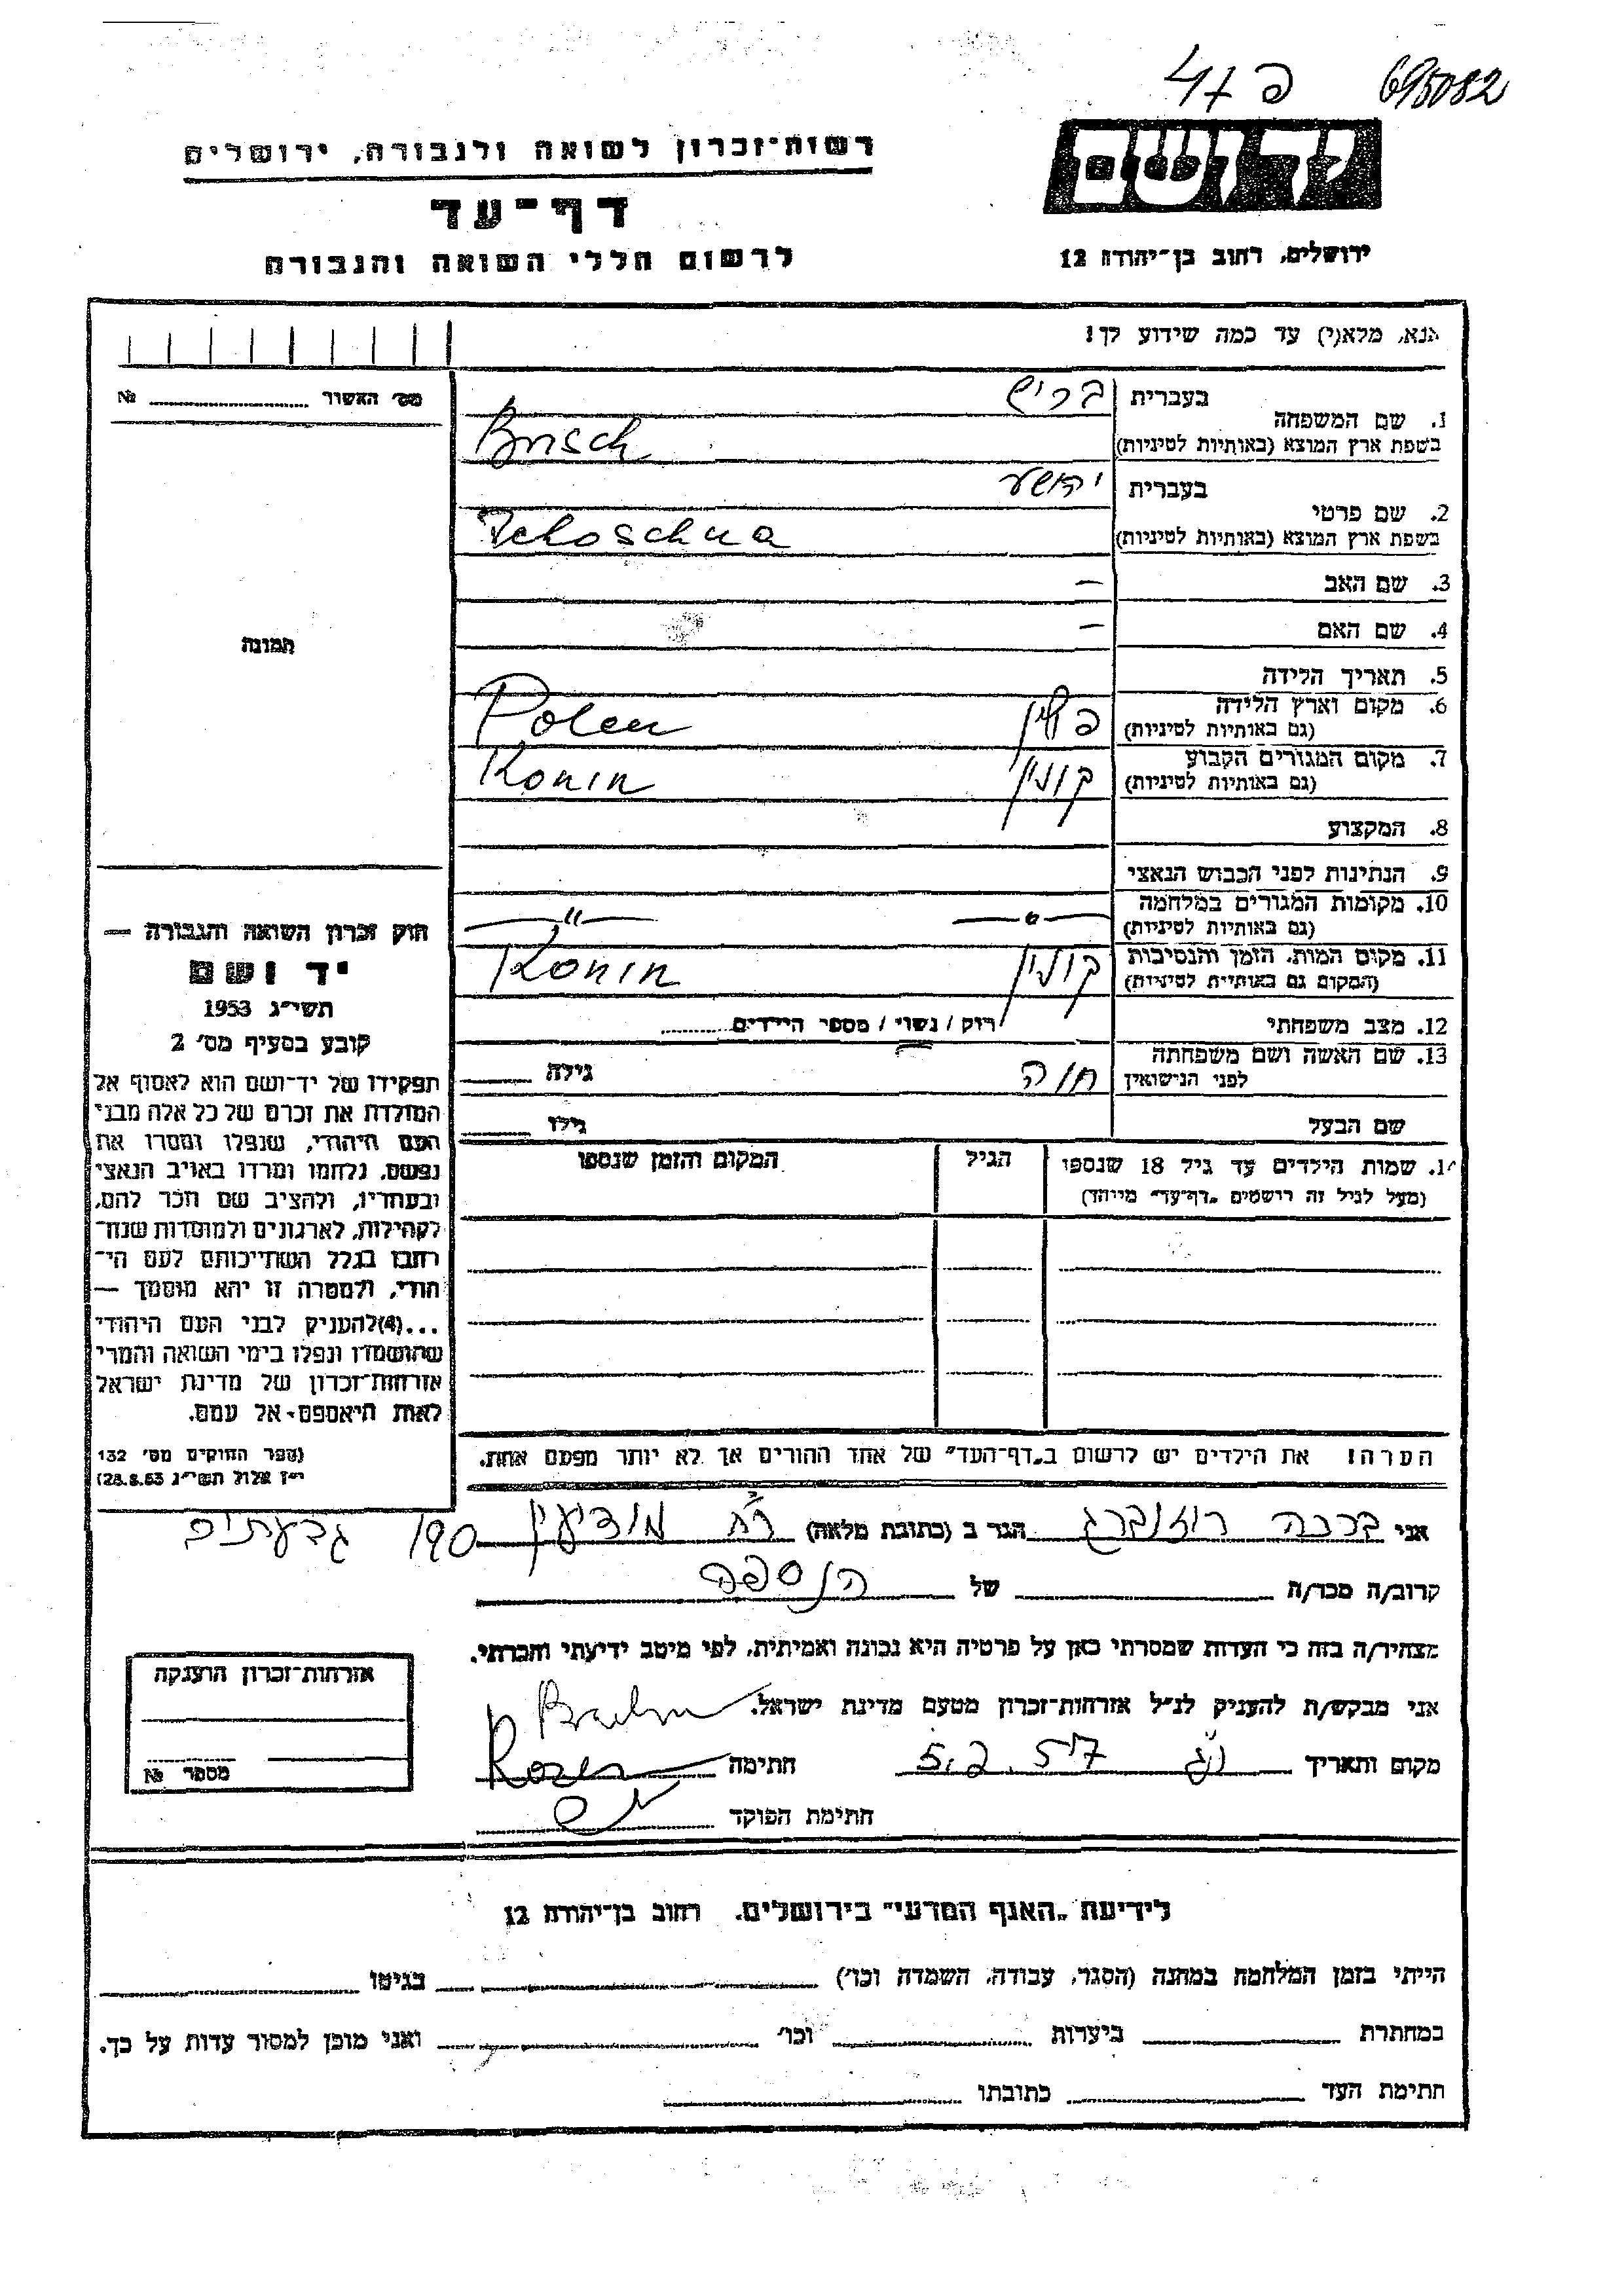 695082
יד ושם
רשות-זכרון לשואה ולגבורה, ירושלים
דף-עד
לרשום חללי השואה והגבורה
ירושלים, רחוב בן-יהודה 12
נא, מלא(י) עד כמה שידוע לך!
מס' האשור № 
תמונה
1. שם המשפחה
בעברית בריש
בשפת ארץ המוצא (באותיות לטיניות) Brisch
2. שם פרטי
בעברית יהושע
בשפת ארץ המוצא (באותיות לטיניות) Jehoschua
3. שם האב –
4. שם האם –
5. תאריך הלידה
6. מקום וארץ הלידה פולין Polen
(גם באותיות לטיניות)
7. מקום המגורים הקבוע קונין Konin
(גם באותיות לטיניות)
8. המקצוע
9. הנתינות לפני הכבוש הנאצי
10. מקומות המגורים במלחמה —"— —"—
(גם באותיות לטיניות)
11. מקום המות, הזמן והנסיבות קונין Konin
(המקום גם באותיות לטיניות)
12. מצב משפחתי רוק / נשוי / מספר הילדים
13. שם האשה ושם משפחתה חוה גילה
לפני הנישואין
שם הבעל גילו
שמות הילדים עד גיל 18 שנספו הגיל המקום והזמן שנספו
(מעל לגיל זה רושמים "דף-עד" מיוחד)
הערה! את הילדים יש לרשום ב"דף-העד" של אחד ההורים אך לא יותר מפעם אחת.
חוק זכרון השואה והגבורה —
יד ושם
תשי"ג 1953
קובע בסעיף מס' 2
תפקידו של יד-ושם הוא לאסוף אל
המולדת את זכרם של כל אלה מבני
העם היהודי, שנפלו ומסרו את
נפשם, נלחמו ומרדו באויב הנאצי
ובעוזריו, ולהציב שם וזכר להם,
לקהילות, לארגונים ולמוסדות שנח-
רבו בגלל השתייכותם לעם הי-
הודי, ולמטרה זו יהא מוסמך —
...(4) להעניק לבני העם היהודי
שהושמדו ונפלו בימי השואה והמרי
אזרחות-זכרון של מדינת ישראל
לאות היאספם אל עמם.
(ספר החוקים מס' 132
י"ז אלול תשי"ג 28.8.53)
אני ברכה רוזנברג הגר ב (כתובת מלאה) רח' מודיעין 190 גבעתיים
קרוב/ה מכר/ה של הנספה
מצהיר/ה בזה כי העדות שמסרתי כאן על פרטיה היא נכונה ואמיתית, לפי מיטב ידיעתי והכרתי.
אני מבקש/ת להעניק לנ"ל אזרחות-זכרון מטעם מדינת ישראל.
מקום ותאריך 5.2.57 חתימה
חתימת הפוקד
אזרחות-זכרון הוענקה
מספר №
לידיעת "האגף המדעי" בירושלים, רחוב בן-יהודה 12
הייתי בזמן המלחמה במחנה (הסגר, עבודה, השמדה וכו') בגיטו
במחתרת ביערות וכו' ואני מוכן למסור עדות על כך.
חתימת העד כתובתו